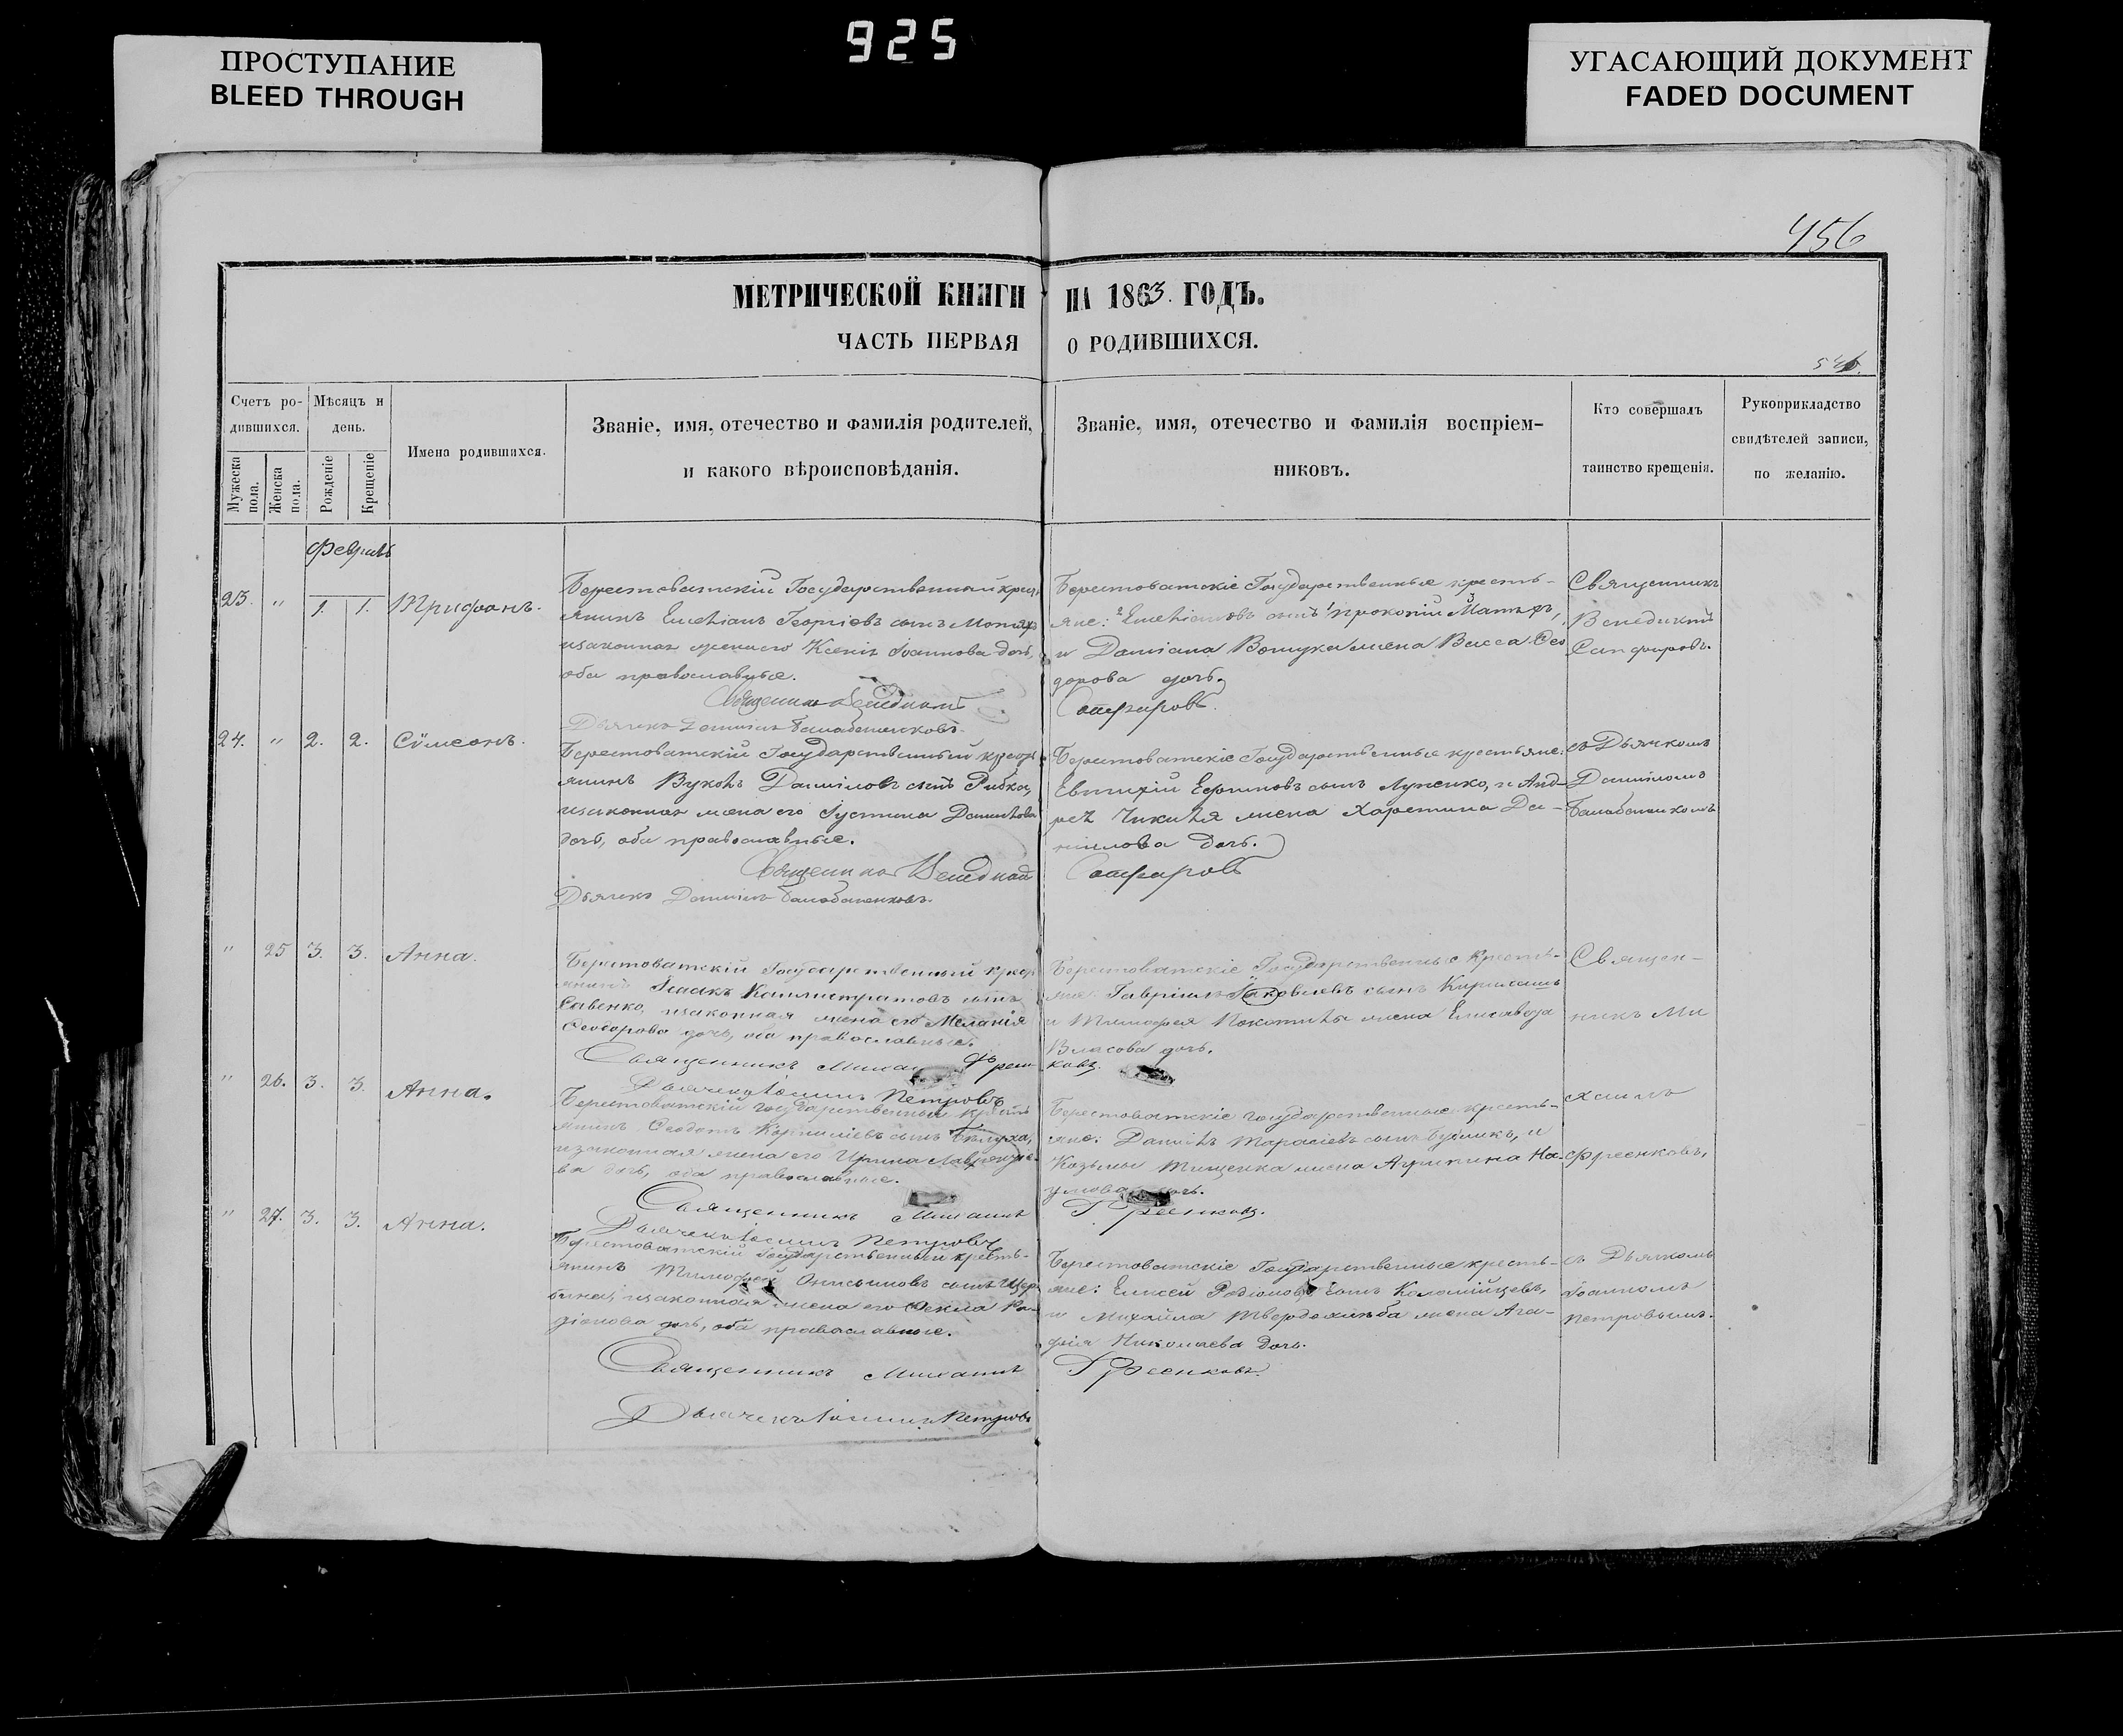 925
ПРОСТУПАНИЕ
BLEED THROUGH
УГАСАЮЩИЙ ДОКУМЕНТ
FADED DOCUMENT
456
МЕТРИЧЕСКОЙ КНИГИ НА 1863. ГОДЪ.
ЧАСТЬ ПЕРВАЯ О РОДИВШИХСЯ.
Счетъ ро-
дившихся.
Мужеска пола.
Женска пола.
Мѣсяцъ и
день.
Рожденіе
Крещеніе
Имена родившихся.
Званіе, имя, отечество и фамилія родителей,
и какого вѣроисповѣданія.
Званіе, имя, отечество и фамилія воспріем-
никовъ.
Кто совершалъ
таинство крещенія.
Рукоприкладство
свидѣтелей записи,
по желанію.
Февраль
23. " 1. 1. Трифонъ.
Берестоватскій Государственный крест
янинъ Емеліанъ Георгіевъ сынъ
изаконная жена его Ксенія Іоаннова дочь,
оба православные.
Берестоватскіе Государственные кресть-
яне: Емеліановъ сынъ Прокопій
и Даміана жена Васса Ѳео
дорова дочь.
Сапфировъ.
Священникъ
Венедиктъ
Сапфировъ.
24. " 2. 2. Сѵмеонъ.
Берестоватскій Государственный крестъ
янинъ Вуколъ Даниіловъ сынъ Рибка,
изаконная жена его Іустина Даниілова
дочь, оба православные.
Священникъ Венедикт
Дьячкъ Даниилъ Балабаненковъ.
Берестоватскіе Государственные крестьяне:
Евтихій Ефимовъ сынъ Луценко, и Анд-
рея жена Харетина Да-
ніилова дочь.
Сапфировъ
съ Дьячкомъ
Даниіломъ
" 25 3. 3. Анна.
Берестоватскій Государственный крест
янинъ Ісаакъ Каллистратовъ сынъ
Савенко, изаконная жена его Меланія
Ѳеодорова дочь, оба православные.
Священникъ
Дьячекъ Іоаннъ Петровъ
Берестоватскіе Государственные кресть-
яне: Гавріилъ Іаковлевъ сынъ
и Тимофея жена Елисавета
Власова дочь.
Священ-
никъ Ми
" 26. 3. 3. Анна.
Берестоватскій государственный кресть
янинъ Ѳеодотъ Корниліевъ сынъ Бѣлуха,
изаконная жена его Ирина Лаврентіе-
ва дочь, оба православные.
Священникъ Михаилъ
Дьячекъ Іоаннъ Петровъ
Берестоватскіе государственные кресть-
яне: Даниілъ Тарасіевъ сынъ и
Козьмы Тищенка жена Агрипина На-
умова дочь.
Ѳеенковъ.
хаилъ
Ѳеенковъ,
" 27. 3. 3. Анна.
Берестоватскій Государственный кресть-
янинъ Тимофей Онисимовъ сынъ Щер-
бина, изаконная жена его Ѳекла Ро-
діонова дочь, оба православные.
Священникъ Михаилъ
Дьячекъ Іоаннъ Петровъ
Берестоватскіе Государственные кресть-
яне: Елисей Родіоновъ сынъ Коломійцевъ,
и Михайла Твердохлѣба жена Ага-
фія Николаева дочь.
Ѳеенковъ.
съ Дьячкомъ
Іоанномъ
Петровымъ.